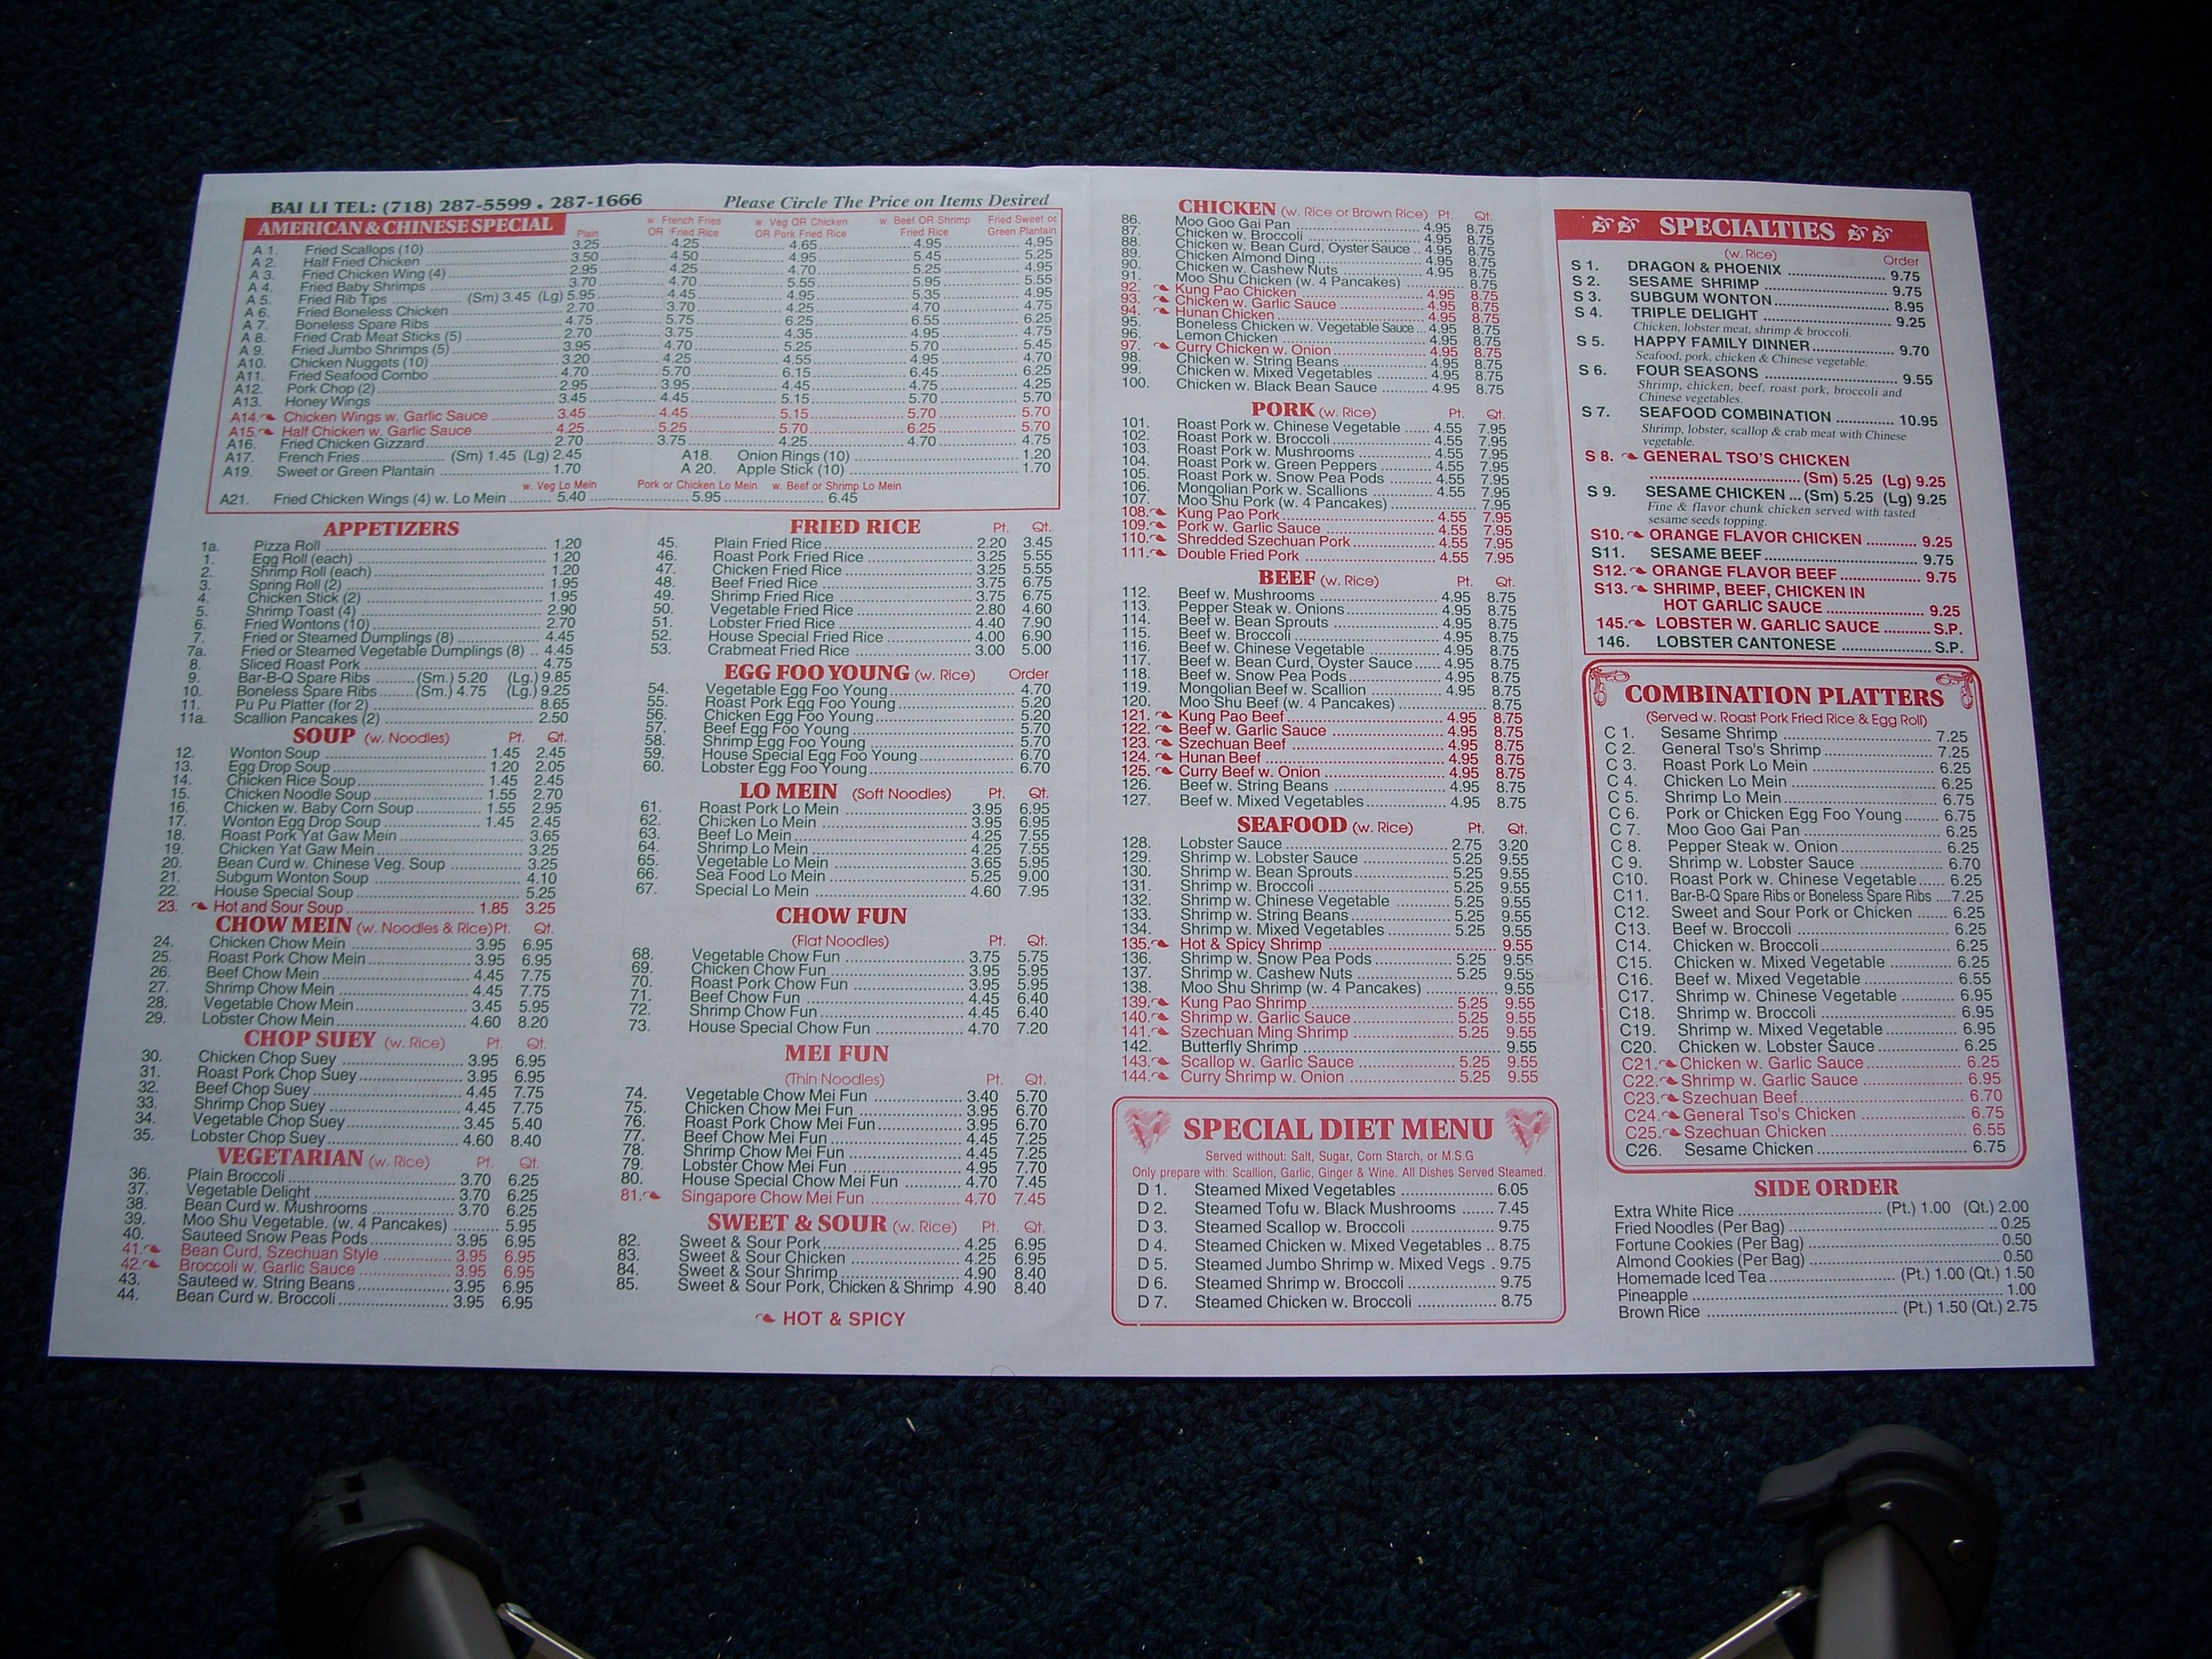 BAI LI TEL: (718) 287-5599 . 287-1666 Please Circle The Price on Items Desired
AMERICAN & CHINESE SPECIAL
Plain w. French Fries OR Fried Rice w. Veg OR Chicken OR Pork Fried Rice w. Beef OR Shrimp Fried Rice Fried Sweet or Green Plantain
A 1. Fried Scallops (10) 3.25 4.25 4.65 4.95 4.95
A 2. Half Fried Chicken 3.50 4.50 4.95 5.45 5.25
A 3. Fried Chicken Wing (4) 2.95 4.25 4.70 5.25 4.95
A 4. Fried Baby Shrimps 3.70 4.70 5.55 5.95 5.55
A 5. Fried Rib Tips (Sm) 3.45 (Lg) 5.95 4.45 4.95 5.35 4.95
A 6. Fried Boneless Chicken 2.70 3.70 4.25 4.70 4.75
A 7. Boneless Spare Ribs 4.75 5.75 6.25 6.55 6.25
A 8. Fried Crab Meat Sticks (5) 2.70 3.75 4.35 4.95 4.75
A 9. Fried Jumbo Shrimps (5) 3.95 4.70 5.25 5.70 5.45
A10. Chicken Nuggets (10) 3.20 4.25 4.55 4.95 4.70
A11. Fried Seafood Combo 4.70 5.70 6.15 6.45 6.25
A12. Pork Chop (2) 2.95 3.95 4.45 4.75 4.25
A13. Honey Wings 3.45 4.45 5.15 5.70 5.70
A14. Chicken Wings w. Garlic Sauce 3.45 4.45 5.15 5.70 5.70
A15. Half Chicken w. Garlic Sauce 4.25 5.25 5.70 6.25 5.70
A16. Fried Chicken Gizzard 2.70 3.75 4.25 4.70 4.75
A17. French Fries (Sm) 1.45 (Lg) 2.45 A18. Onion Rings (10) 1.20
A19. Sweet or Green Plantain 1.70 A 20. Apple Stick (10) 1.70
w. Veg Lo Mein Pork or Chicken Lo Mein w. Beef or Shrimp Lo Mein
A21. Fried Chicken Wings (4) w. Lo Mein 5.40 5.95 6.45
APPETIZERS
1a. Pizza Roll 1.20
1. Egg Roll (each) 1.20
2. Shrimp Roll (each) 1.20
3. Spring Roll (2) 1.95
4. Chicken Stick (2) 1.95
5. Shrimp Toast (4) 2.90
6. Fried Wontons (10) 2.70
7. Fried or Steamed Dumplings (8) 4.45
7a. Fried or Steamed Vegetable Dumplings (8) 4.45
8. Sliced Roast Pork 4.75
9. Bar-B-Q Spare Ribs (Sm.) 5.20 (Lg.) 9.85
10. Boneless Spare Ribs (Sm.) 4.75 (Lg.) 9.25
11. Pu Pu Platter (for 2) 8.65
11a. Scallion Pancakes (2) 2.50
SOUP (w. Noodles) Pt. Qt.
12. Wonton Soup 1.45 2.45
13. Egg Drop Soup 1.20 2.05
14. Chicken Rice Soup 1.45 2.45
15. Chicken Noodle Soup 1.55 2.70
16. Chicken w. Baby Corn Soup 1.55 2.95
17. Wonton Egg Drop Soup 1.45 2.45
18. Roast Pork Yat Gaw Mein 3.65
19. Chicken Yat Gaw Mein 3.25
20. Bean Curd w. Chinese Veg. Soup 3.25
21. Subgum Wonton Soup 4.10
22. House Special Soup 5.25
23. Hot and Sour Soup 1.85 3.25
CHOW MEIN (w. Noodles & Rice) Pt. Qt.
24. Chicken Chow Mein 3.95 6.95
25. Roast Pork Chow Mein 3.95 6.95
26. Beef Chow Mein 4.45 7.75
27. Shrimp Chow Mein 4.45 7.75
28. Vegetable Chow Mein 3.45 5.95
29. Lobster Chow Mein 4.60 8.20
CHOP SUEY (w. Rice) Pt. Qt.
30. Chicken Chop Suey 3.95 6.95
31. Roast Pork Chop Suey 3.95 6.95
32. Beef Chop Suey 4.45 7.75
33. Shrimp Chop Suey 4.45 7.75
34. Vegetable Chop Suey 3.45 5.40
35. Lobster Chop Suey 4.60 8.40
VEGETARIAN (w. Rice) Pt. Qt.
36. Plain Broccoli 3.70 6.25
37. Vegetable Delight 3.70 6.25
38. Bean Curd w. Mushrooms 3.70 6.25
39. Moo Shu Vegetable. (w. 4 Pancakes) 5.95
40. Sauteed Snow Peas Pods 3.95 6.95
41. Bean Curd, Szechuan Style 3.95 6.95
42. Broccoli w. Garlic Sauce 3.95 6.95
43. Sauteed w. String Beans 3.95 6.95
44. Bean Curd w. Broccoli 3.95 6.95
FRIED RICE Pt. Qt.
45. Plain Fried Rice 2.20 3.45
46. Roast Pork Fried Rice 3.25 5.55
47. Chicken Fried Rice 3.25 5.55
48. Beef Fried Rice 3.75 6.75
49. Shrimp Fried Rice 3.75 6.75
50. Vegetable Fried Rice 2.80 4.60
51. Lobster Fried Rice 4.40 7.90
52. House Special Fried Rice 4.00 6.90
53. Crabmeat Fried Rice 3.00 5.00
EGG FOO YOUNG (w. Rice) Order
54. Vegetable Egg Foo Young 4.70
55. Roast Pork Egg Foo Young 5.20
56. Chicken Egg Foo Young 5.20
57. Beef Egg Foo Young 5.70
58. Shrimp Egg Foo Young 5.70
59. House Special Egg Foo Young 6.70
60. Lobster Egg Foo Young 6.70
LO MEIN (Soft Noodles) Pt. Qt.
61. Roast Pork Lo Mein 3.95 6.95
62. Chicken Lo Mein 3.95 6.95
63. Beef Lo Mein 4.25 7.55
64. Shrimp Lo Mein 4.25 7.55
65. Vegetable Lo Mein 3.65 5.95
66. Sea Food Lo Mein 5.25 9.00
67. Special Lo Mein 4.60 7.95
CHOW FUN
(Flat Noodles) Pt. Qt.
68. Vegetable Chow Fun 3.75 5.75
69. Chicken Chow Fun 3.95 5.95
70. Roast Pork Chow Fun 3.95 5.95
71. Beef Chow Fun 4.45 6.40
72. Shrimp Chow Fun 4.45 6.40
73. House Special Chow Fun 4.70 7.20
MEI FUN
(Thin Noodles) Pt. Qt.
74. Vegetable Chow Mei Fun 3.40 5.70
75. Chicken Chow Mei Fun 3.95 6.70
76. Roast Pork Chow Mei Fun 3.95 6.70
77. Beef Chow Mei Fun 4.45 7.25
78. Shrimp Chow Mei Fun 4.45 7.25
79. Lobster Chow Mei Fun 4.95 7.70
80. House Special Chow Mei Fun 4.70 7.45
81. Singapore Chow Mei Fun 4.70 7.45
SWEET & SOUR (w. Rice) Pt. Qt.
82. Sweet & Sour Pork 4.25 6.95
83. Sweet & Sour Chicken 4.25 6.95
84. Sweet & Sour Shrimp 4.90 8.40
85. Sweet & Sour Pork, Chicken & Shrimp 4.90 8.40
HOT & SPICY
CHICKEN (w. Rice or Brown Rice) Pt. Qt.
86. Moo Goo Gai Pan 4.95 8.75
87. Chicken w. Broccoli 4.95 8.75
88. Chicken w. Bean Curd, Oyster Sauce 4.95 8.75
89. Chicken Almond Ding 4.95 8.75
90. Chicken w. Cashew Nuts 4.95 8.75
91. Moo Shu Chicken (w. 4 Pancakes) 8.75
92. Kung Pao Chicken 4.95 8.75
93. Chicken w. Garlic Sauce 4.95 8.75
94. Hunan Chicken 4.95 8.75
95. Boneless Chicken w. Vegetable Sauce 4.95 8.75
96. Lemon Chicken 4.95 8.75
97. Curry Chicken w. Onion 4.95 8.75
98. Chicken w. String Beans 4.95 8.75
99. Chicken w. Mixed Vegetables 4.95 8.75
100. Chicken w. Black Bean Sauce 4.95 8.75
PORK (w. Rice) Pt. Qt.
101. Roast Pork w. Chinese Vegetable 4.55 7.95
102. Roast Pork w. Broccoli 4.55 7.95
103. Roast Pork w. Mushrooms 4.55 7.95
104. Roast Pork w. Green Peppers 4.55 7.95
105. Roast Pork w. Snow Pea Pods 4.55 7.95
106. Mongolian Pork w. Scallions 4.55 7.95
107. Moo Shu Pork (w. 4 Pancakes) 7.95
108. Kung Pao Pork 4.55 7.95
109. Pork w. Garlic Sauce 4.55 7.95
110. Shredded Szechuan Pork 4.55 7.95
111. Double Fried Pork 4.55 7.95
BEEF (w. Rice) Pt. Qt.
112. Beef w. Mushrooms 4.95 8.75
113. Pepper Steak w. Onions 4.95 8.75
114. Beef w. Bean Sprouts 4.95 8.75
115. Beef w. Broccoli 4.95 8.75
116. Beef w. Chinese Vegetable 4.95 8.75
117. Beef w. Bean Curd, Oyster Sauce 4.95 8.75
118. Beef w. Snow Pea Pods 4.95 8.75
119. Mongolian Beef w. Scallion 4.95 8.75
120. Moo Shu Beef (w. 4 Pancakes) 8.75
121. Kung Pao Beef 4.95 8.75
122. Beef w. Garlic Sauce 4.95 8.75
123. Szechuan Beef 4.95 8.75
124. Hunan Beef 4.95 8.75
125. Curry Beef w. Onion 4.95 8.75
126. Beef w. String Beans 4.95 8.75
127. Beef w. Mixed Vegetables 4.95 8.75
SEAFOOD (w. Rice) Pt. Qt.
128. Lobster Sauce 2.75 3.20
129. Shrimp w. Lobster Sauce 5.25 9.55
130. Shrimp w. Bean Sprouts 5.25 9.55
131. Shrimp w. Broccoli 5.25 9.55
132. Shrimp w. Chinese Vegetable 5.25 9.55
133. Shrimp w. String Beans 5.25 9.55
134. Shrimp w. Mixed Vegetables 5.25 9.55
135. Hot & Spicy Shrimp 9.55
136. Shrimp w. Snow Pea Pods 5.25 9.55
137. Shrimp w. Cashew Nuts 5.25 9.55
138. Moo Shu Shrimp (w. 4 Pancakes) 9.55
139. Kung Pao Shrimp 5.25 9.55
140. Shrimp w. Garlic Sauce 5.25 9.55
141. Szechuan Ming Shrimp 5.25 9.55
142. Butterfly Shrimp 9.55
143. Scallop w. Garlic Sauce 5.25 9.55
144. Curry Shrimp w. Onion 5.25 9.55
SPECIAL DIET MENU
Served without: Salt, Sugar, Corn Starch, or M.S.G
Only prepare with: Scallion, Garlic, Ginger & Wine. All Dishes Served Steamed.
D 1. Steamed Mixed Vegetables 6.05
D 2. Steamed Tofu w. Black Mushrooms 7.45
D 3. Steamed Scallop w. Broccoli 9.75
D 4. Steamed Chicken w. Mixed Vegetables 8.75
D 5. Steamed Jumbo Shrimp w. Mixed Vegs 9.75
D 6. Steamed Shrimp w. Broccoli 9.75
D 7. Steamed Chicken w. Broccoli 8.75
SPECIALTIES
(w. Rice) Order
S 1. DRAGON & PHOENIX 9.75
S 2. SESAME SHRIMP 9.75
S 3. SUBGUM WONTON 8.95
S 4. TRIPLE DELIGHT 9.25
Chicken, lobster meat, shrimp & broccoli.
S 5. HAPPY FAMILY DINNER 9.70
Seafood, pork, chicken & Chinese vegetable.
S 6. FOUR SEASONS 9.55
Shrimp, chicken, beef, roast pork, broccoli and
Chinese vegetables.
S 7. SEAFOOD COMBINATION 10.95
Shrimp, lobster, scallop & crab meat with Chinese
vegetable.
S 8. GENERAL TSO'S CHICKEN
(Sm) 5.25 (Lg) 9.25
S 9. SESAME CHICKEN ... (Sm) 5.25 (Lg) 9.25
Fine & flavor chunk chicken served with tasted
sesame seeds topping.
S10. ORANGE FLAVOR CHICKEN 9.25
S11. SESAME BEEF 9.75
S12. ORANGE FLAVOR BEEF 9.75
S13. SHRIMP, BEEF, CHICKEN IN
HOT GARLIC SAUCE 9.25
145. LOBSTER W. GARLIC SAUCE S.P.
146. LOBSTER CANTONESE S.P.
COMBINATION PLATTERS
(Served w. Roast Pork Fried Rice & Egg Roll)
C 1. Sesame Shrimp 7.25
C 2. General Tso's Shrimp 7.25
C 3. Roast Pork Lo Mein 6.25
C 4. Chicken Lo Mein 6.25
C 5. Shrimp Lo Mein 6.75
C 6. Pork or Chicken Egg Foo Young 6.75
C 7. Moo Goo Gai Pan 6.25
C 8. Pepper Steak w. Onion 6.25
C 9. Shrimp w. Lobster Sauce 6.70
C10. Roast Pork w. Chinese Vegetable 6.25
C11. Bar-B-Q Spare Ribs or Boneless Spare Ribs 7.25
C12. Sweet and Sour Pork or Chicken 6.25
C13. Beef w. Broccoli 6.25
C14. Chicken w. Broccoli 6.25
C15. Chicken w. Mixed Vegetable 6.25
C16. Beef w. Mixed Vegetable 6.55
C17. Shrimp w. Chinese Vegetable 6.95
C18. Shrimp w. Broccoli 6.95
C19. Shrimp w. Mixed Vegetable 6.95
C20. Chicken w. Lobster Sauce 6.25
C21. Chicken w. Garlic Sauce 6.25
C22. Shrimp w. Garlic Sauce 6.95
C23. Szechuan Beef 6.70
C24. General Tso's Chicken 6.75
C25. Szechuan Chicken 6.55
C26. Sesame Chicken 6.75
SIDE ORDER
Extra White Rice (Pt.) 1.00 (Qt.) 2.00
Fried Noodles (Per Bag) 0.25
Fortune Cookies (Per Bag) 0.50
Almond Cookies (Per Bag) 0.50
Homemade Iced Tea (Pt.) 1.00 (Qt.) 1.50
Pineapple 1.00
Brown Rice (Pt.) 1.50 (Qt.) 2.75